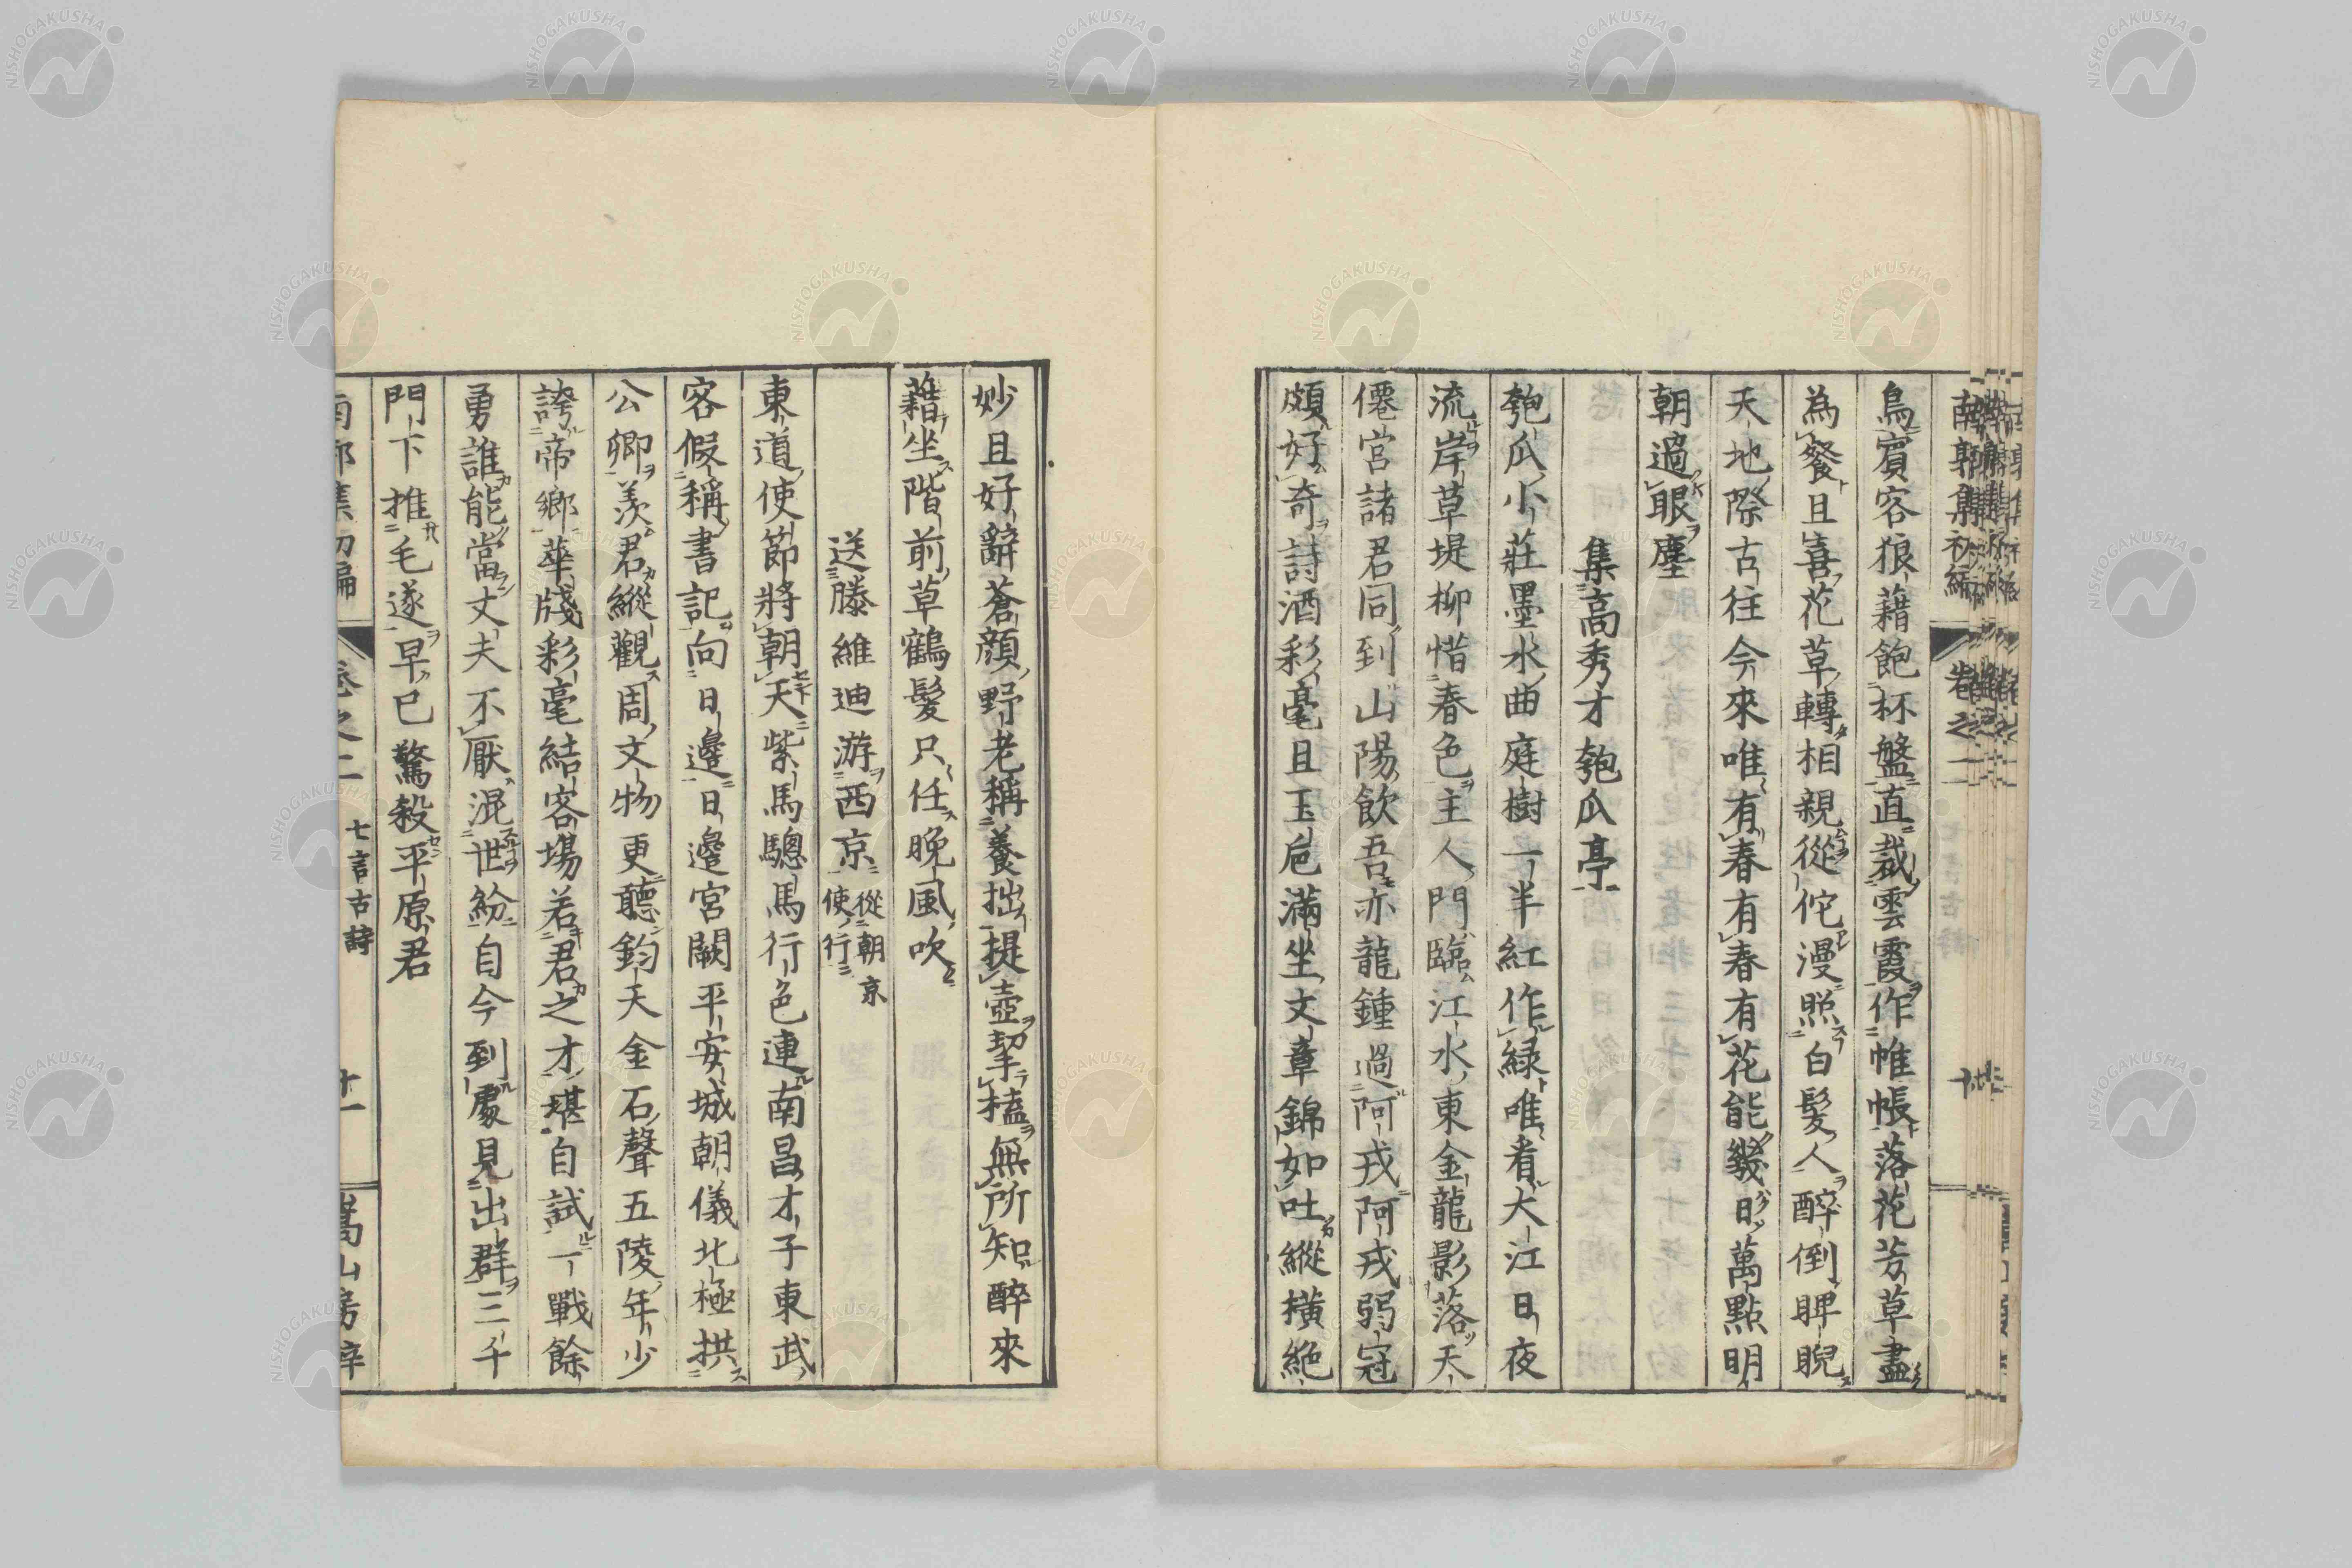 南郭集初編 卷之二
鳥賓客狼藉飽杯盤直裁雲霞作帷帳落花芳草盡
為餐且喜花草轉相親從佗漫照白髮人醉倒睥睨
天地際古往今來唯有春有春有花能幾日萬點明
朝過眼塵
集高秀才匏瓜亭
匏瓜小莊墨水曲庭樹一半紅作綠唯看大江日夜
流岸草堤柳惜春色主人門臨江水東金龍影落天
僊宮諸君同到山陽飲吾亦龍鍾過阿戎阿戎弱冠
頗好奇詩酒彩毫且玉巵滿坐文章錦如吐縱橫絶
妙且好辭蒼顏野老稱養拙提壺挈榼無所知醉來
藉坐階前草鶴髮只任晚風吹
送滕維迪游西京 從朝京使行
東道使節將朝天紫馬驄馬行色連南昌才子東武
客假稱書記向日邊日邊宮闕平安城朝儀北極拱
公卿羨君縱觀周文物更聽鈞天金石聲五陵年少
誇帝鄉華牋彩毫結客場若君之才堪自試一戰餘
勇誰能當丈夫不厭混世紛自今到處見出群三千
門下推毛遂早已驚殺平原君
南郭集初編 卷之二 七言古詩 十一 嵩山房梓